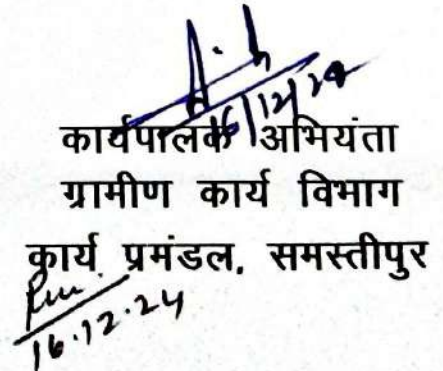 16/12/24
कार्यपालक अभियंता
ग्रामीण कार्य विभाग
कार्य प्रमंडल, समस्तीपुर
16.12.24